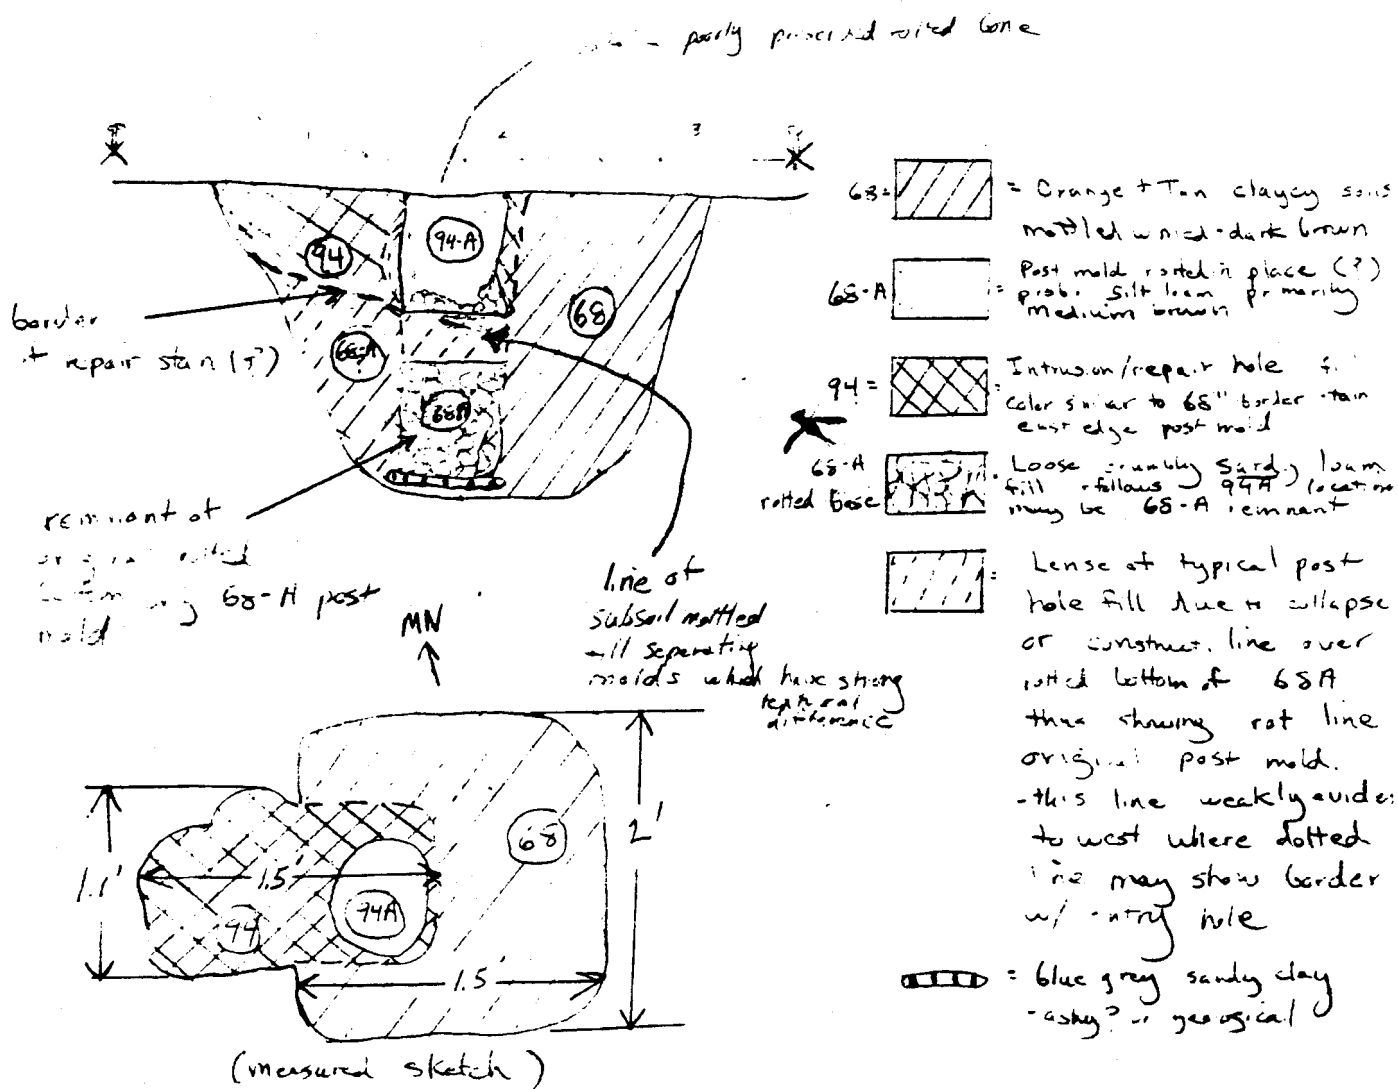 poorly preserved bone
2 3
94
94-A
68
68-A
68A
border
repair stain (?)
remnant of
68-A post
mold
line of
subsoil mottled
fill separating
molds which have strong
textural
difference
MN
68 = = Orange + Tan clayey soils
mottled w med-dark brown
68-A = Post mold rotted in place (?)
prob. silt loam primarily
medium brown
94 = Intrusion/repair hole
color similar to 68" border stain
east edge post mold
68-A
rotted base
Loose crumbly sandy loam
fill follows 94A location
may be 68-A remnant
= Lense of typical post
hole fill due to collapse
or construct. line over
rotted bottom of 68A
thus showing rot line
original post mold.
- this line weakly
to west where dotted
line may show border
w/ entry hole
= blue grey sandy clay
- ashy? or geological
1.1'
1.5'
94
94A
68
2'
1.5'
(measured sketch)